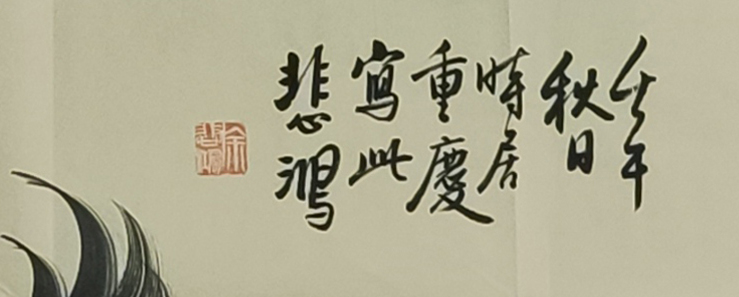 壬午
秋日
時居
重慶
寫此
悲鴻